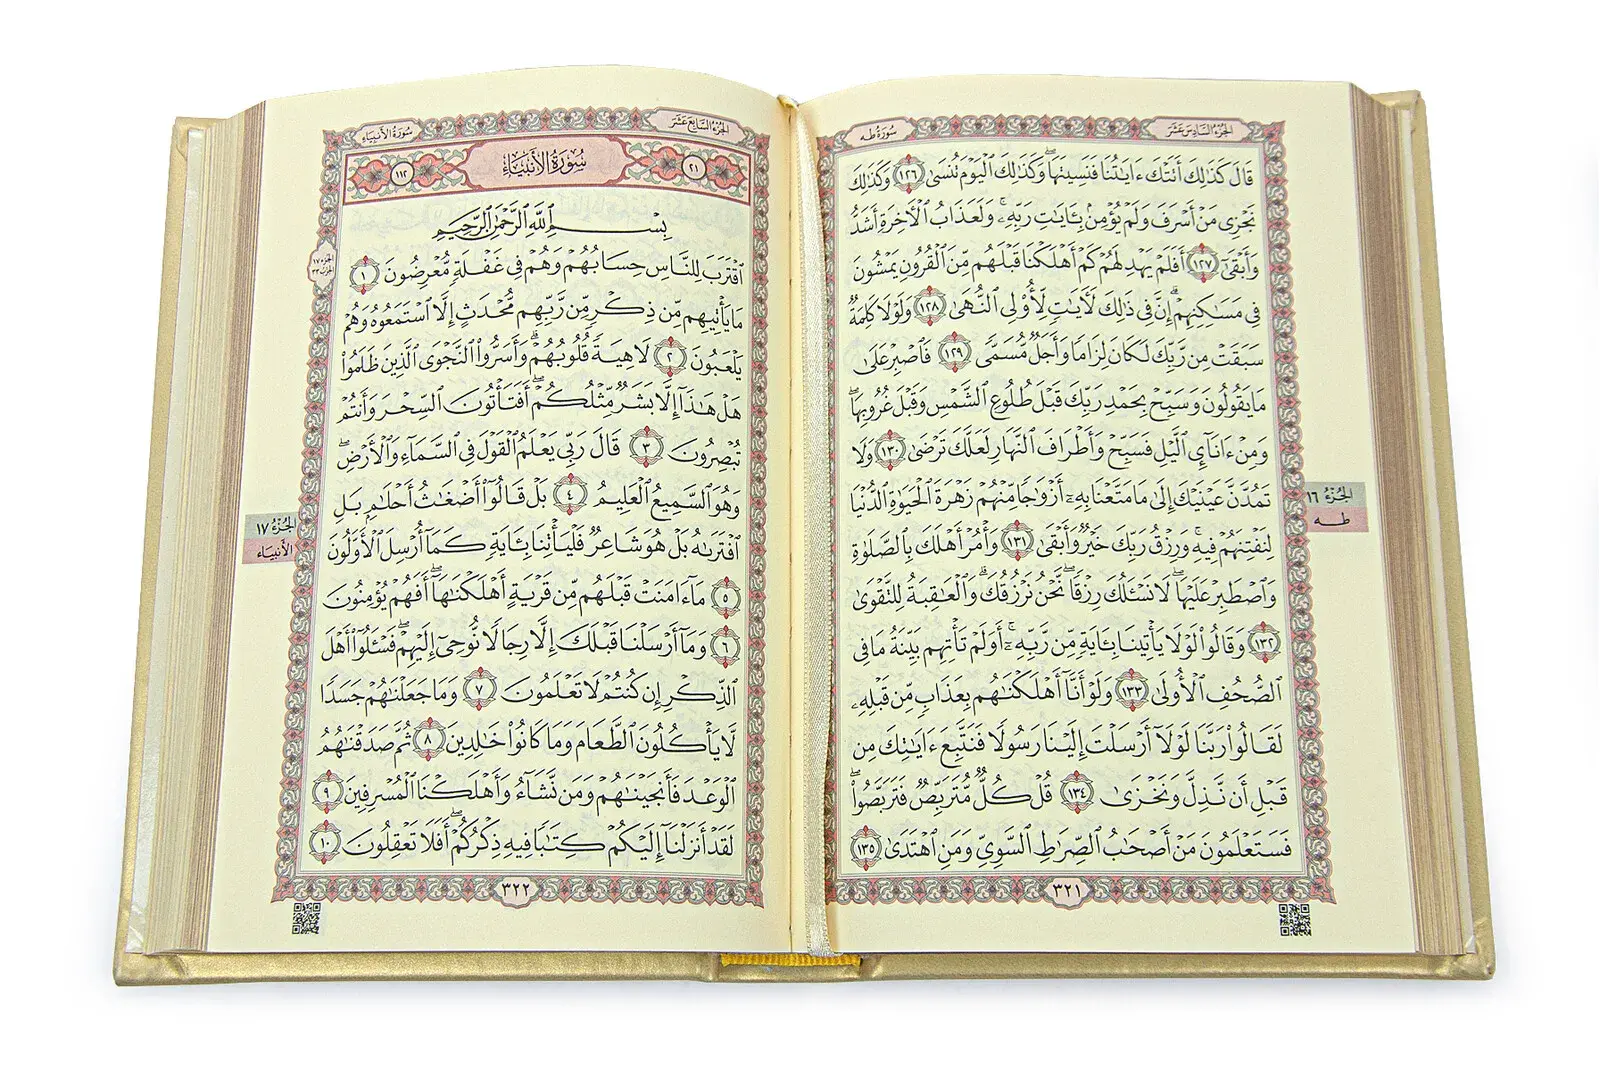 الجزء السادس عشر
سورة طه
قَالَ كَذَٰلِكَ أَتَتْكَ ءَايَٰتُنَا فَنَسِيتَهَا ۖ وَكَذَٰلِكَ ٱلْيَوْمَ تُنسَىٰ ١٢٦ وَكَذَٰلِكَ
نَجْزِى مَنْ أَسْرَفَ وَلَمْ يُؤْمِنۢ بِـَٔايَٰتِ رَبِّهِۦ ۚ وَلَعَذَابُ ٱلْـَٔاخِرَةِ أَشَدُّ
وَأَبْقَىٰٓ ١٢٧ أَفَلَمْ يَهْدِ لَهُمْ كَمْ أَهْلَكْنَا قَبْلَهُم مِّنَ ٱلْقُرُونِ يَمْشُونَ
فِى مَسَٰكِنِهِمْ ۗ إِنَّ فِى ذَٰلِكَ لَـَٔايَٰتٍ لِّأُو۟لِى ٱلنُّهَىٰ ١٢٨ وَلَوْلَا كَلِمَةٌ
سَبَقَتْ مِن رَّبِّكَ لَكَانَ لِزَامًا وَأَجَلٌ مُّسَمًّى ١٢٩ فَٱصْبِرْ عَلَىٰ
مَا يَقُولُونَ وَسَبِّحْ بِحَمْدِ رَبِّكَ قَبْلَ طُلُوعِ ٱلشَّمْسِ وَقَبْلَ غُرُوبِهَا ۖ
وَمِنْ ءَانَآئِ ٱلَّيْلِ فَسَبِّحْ وَأَطْرَافَ ٱلنَّهَارِ لَعَلَّكَ تَرْضَىٰ ١٣٠ وَلَا
تَمُدَّنَّ عَيْنَيْكَ إِلَىٰ مَا مَتَّعْنَا بِهِۦٓ أَزْوَٰجًا مِّنْهُمْ زَهْرَةَ ٱلْحَيَوٰةِ ٱلدُّنْيَا
لِنَفْتِنَهُمْ فِيهِ ۚ وَرِزْقُ رَبِّكَ خَيْرٌ وَأَبْقَىٰ ١٣١ وَأْمُرْ أَهْلَكَ بِٱلصَّلَوٰةِ
وَٱصْطَبِرْ عَلَيْهَا ۖ لَا نَسْـَٔلُكَ رِزْقًا ۖ نَّحْنُ نَرْزُقُكَ ۗ وَٱلْعَٰقِبَةُ لِلتَّقْوَىٰ
١٣٢ وَقَالُوا۟ لَوْلَا يَأْتِينَا بِـَٔايَةٍ مِّن رَّبِّهِۦٓ ۚ أَوَلَمْ تَأْتِهِم بَيِّنَةُ مَا فِى
ٱلصُّحُفِ ٱلْأُولَىٰ ١٣٣ وَلَوْ أَنَّآ أَهْلَكْنَٰهُم بِعَذَابٍ مِّن قَبْلِهِۦ
لَقَالُوا۟ رَبَّنَا لَوْلَآ أَرْسَلْتَ إِلَيْنَا رَسُولًا فَنَتَّبِعَ ءَايَٰتِكَ مِن
قَبْلِ أَن نَّذِلَّ وَنَخْزَىٰ ١٣٤ قُلْ كُلٌّ مُّتَرَبِّصٌ فَتَرَبَّصُوا۟ ۖ
فَسَتَعْلَمُونَ مَنْ أَصْحَٰبُ ٱلصِّرَٰطِ ٱلسَّوِىِّ وَمَنِ ٱهْتَدَىٰ ١٣٥
٣٢١
الجزء ١٦
طه
الجزء السابع عشر
سورة الأنبياء
٢١
سُورَةُ الأَنبِيَاءِ
١١٢
بِسْمِ ٱللَّهِ ٱلرَّحْمَٰنِ ٱلرَّحِيمِ
ٱقْتَرَبَ لِلنَّاسِ حِسَابُهُمْ وَهُمْ فِى غَفْلَةٍ مُّعْرِضُونَ ١
مَا يَأْتِيهِم مِّن ذِكْرٍ مِّن رَّبِّهِم مُّحْدَثٍ إِلَّا ٱسْتَمَعُوهُ وَهُمْ
يَلْعَبُونَ ٢ لَاهِيَةً قُلُوبُهُمْ ۗ وَأَسَرُّوا۟ ٱلنَّجْوَى ٱلَّذِينَ ظَلَمُوا۟
هَلْ هَٰذَآ إِلَّا بَشَرٌ مِّثْلُكُمْ ۖ أَفَتَأْتُونَ ٱلسِّحْرَ وَأَنتُمْ
تُبْصِرُونَ ٣ قَالَ رَبِّى يَعْلَمُ ٱلْقَوْلَ فِى ٱلسَّمَآءِ وَٱلْأَرْضِ ۖ
وَهُوَ ٱلسَّمِيعُ ٱلْعَلِيمُ ٤ بَلْ قَالُوٓا۟ أَضْغَٰثُ أَحْلَٰمٍۭ بَلِ
ٱفْتَرَىٰهُ بَلْ هُوَ شَاعِرٌ فَلْيَأْتِنَا بِـَٔايَةٍ كَمَآ أُرْسِلَ ٱلْأَوَّلُونَ
٥ مَآ ءَامَنَتْ قَبْلَهُم مِّن قَرْيَةٍ أَهْلَكْنَٰهَآ ۖ أَفَهُمْ يُؤْمِنُونَ
٦ وَمَآ أَرْسَلْنَا قَبْلَكَ إِلَّا رِجَالًا نُّوحِىٓ إِلَيْهِمْ ۖ فَسْـَٔلُوٓا۟ أَهْلَ
ٱلذِّكْرِ إِن كُنتُمْ لَا تَعْلَمُونَ ٧ وَمَا جَعَلْنَٰهُمْ جَسَدًا
لَّا يَأْكُلُونَ ٱلطَّعَامَ وَمَا كَانُوا۟ خَٰلِدِينَ ٨ ثُمَّ صَدَقْنَٰهُمُ
ٱلْوَعْدَ فَأَنجَيْنَٰهُمْ وَمَن نَّشَآءُ وَأَهْلَكْنَا ٱلْمُسْرِفِينَ ٩
لَقَدْ أَنزَلْنَآ إِلَيْكُمْ كِتَٰبًا فِيهِ ذِكْرُكُمْ ۖ أَفَلَا تَعْقِلُونَ ١٠
٣٢٢
الجزء ١٧
الحزب ٣٣
الجزء ١٧
الأنبياء